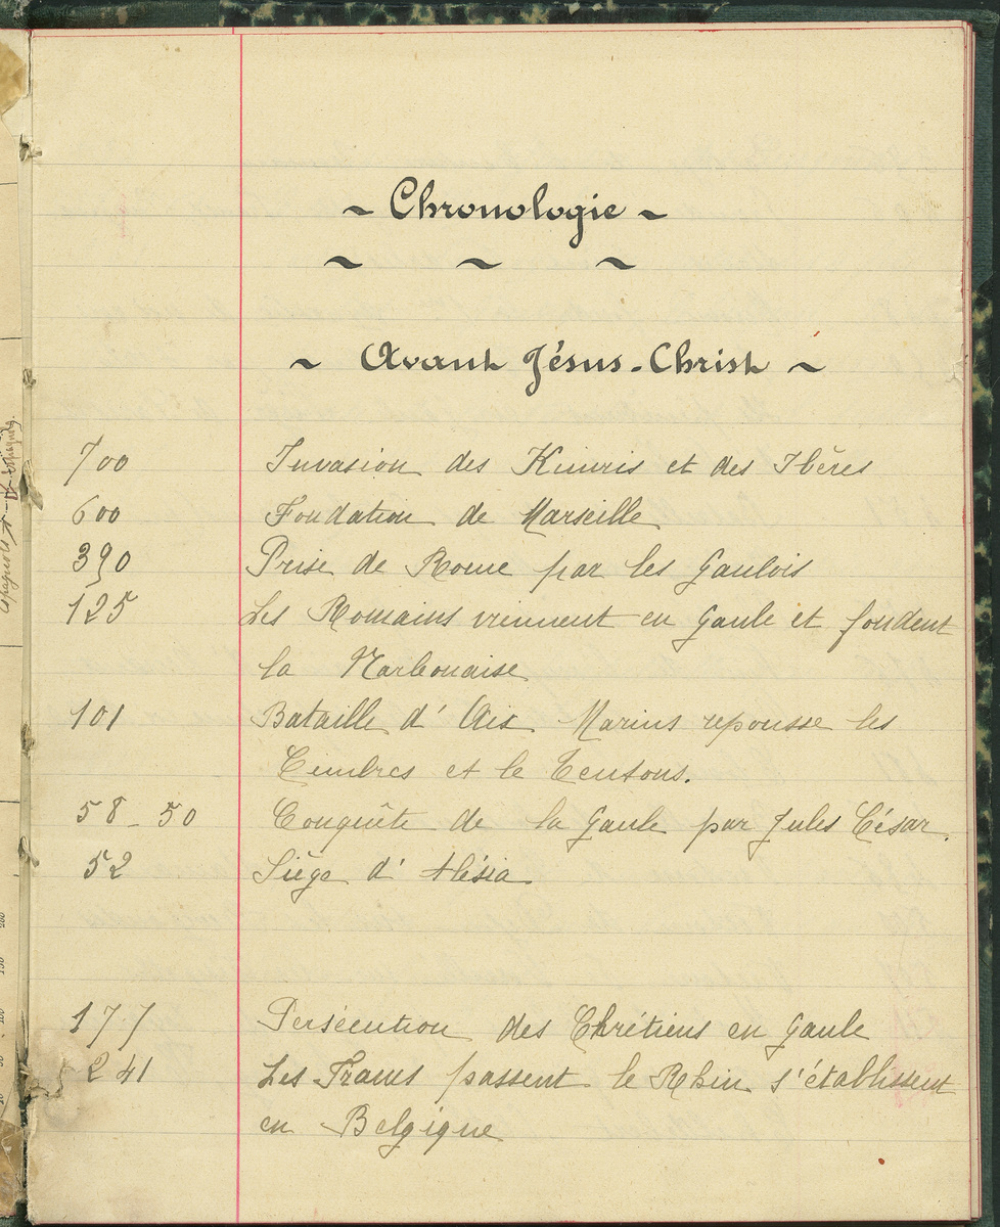 ~ Chronologie ~
~ Avant Jésus-Christ ~
700 Invasion des Kimris et des Ibères
600 Fondation de Marseille
390 Prise de Rome par les Gaulois
125 Les Romains viennent en Gaule et fondent
la Narbonaise
101 Bataille d'Aix Marius repousse les
Cimbres et le Teutons.
58-50 Conquête de la Gaule par Jules César.
52 Siège d'Alésia
177 Persécution des Chrétiens en Gaule
241 Les Francs passent le Rhin s'établissent
en Belgique